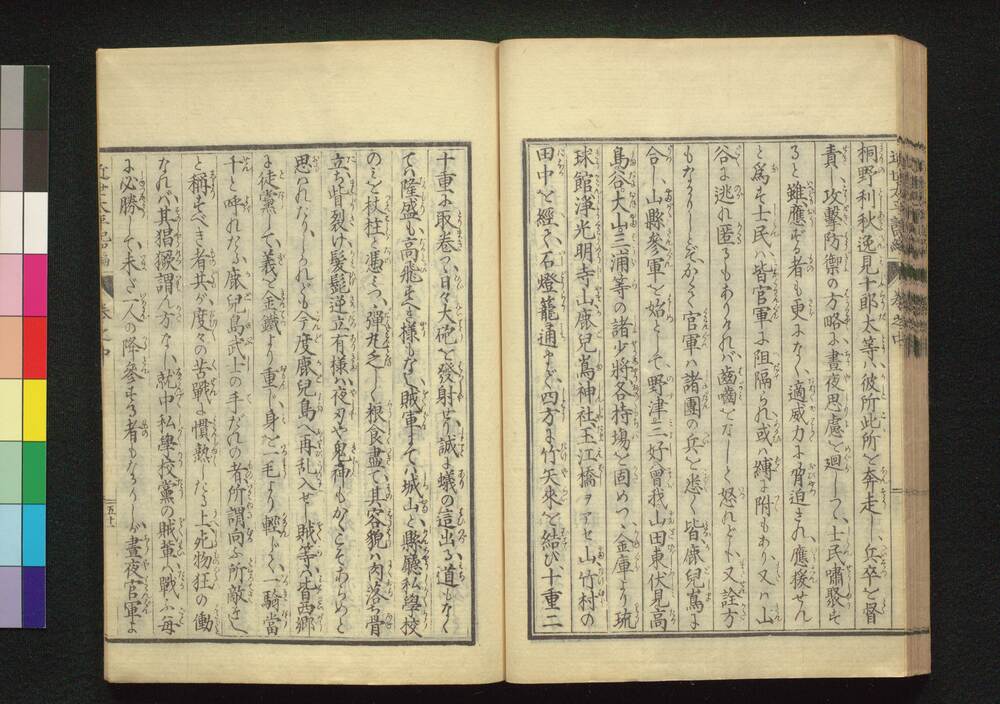 桐野利秋逸見十郎太等ハ彼所此所と奔走し、兵卒を督
責、攻擊防禦の方略に晝夜思慮を廻しつゝ、士民嘯聚す
ると雖應ずる者も更になく、適威力に脅迫され、應援せん
と爲す士民ハ皆官軍に阻隔られ、或ハ縛に附もあり、又ハ山
谷に逃れ匿るもありけれバ、齒嚙をなして怒れども、又詮方
もなかりしぞ、かくて官軍ハ諸團の兵を悉く皆鹿兒嶌に
合し、山縣參軍を始として、野津三好曾我山田東伏見高
島谷大山三浦等の諸少將各持塲を固めつゝ、金庫より琉
球館淨光明寺山鹿兒嶌神社玉江橋ヲアセ山竹村の
田中を經て、石燈籠通まで、四方に竹矢來を結び、十重二
十重に取卷つゝ、日々大砲を發射せバ、誠に蟻の這出る道もなく
てハ、隆盛も高飛すべき様もなく、賊軍にてハ城山と縣廳私學校
のミを杖柱と憑ミつゝ、彈丸乏しく粮食盡て、其容貌ハ肉落ち骨
立ち、眥裂け、髮髭逆立有様ハ、夜刃や鬼神もかくこそあらめと
思はれたり、されども今度鹿兒島へ再乱入せし賊等ハ、皆西郷
に徒黨して、義を金鐵より重じ、身を一毛より輕んじ、一騎當
千と呼れたる鹿兒島武士の手だれの者、所謂向ふ所敵なし
と稱すべき者共が、度々の苦戰に慣熟たる上、死物狂の働
なれバ、其猖獗謂ん方なし、就中私學校黨の賊軰ハ、戰ふ毎
に必勝して、未だ一人の降參する者もなかりしが、晝夜官軍よ